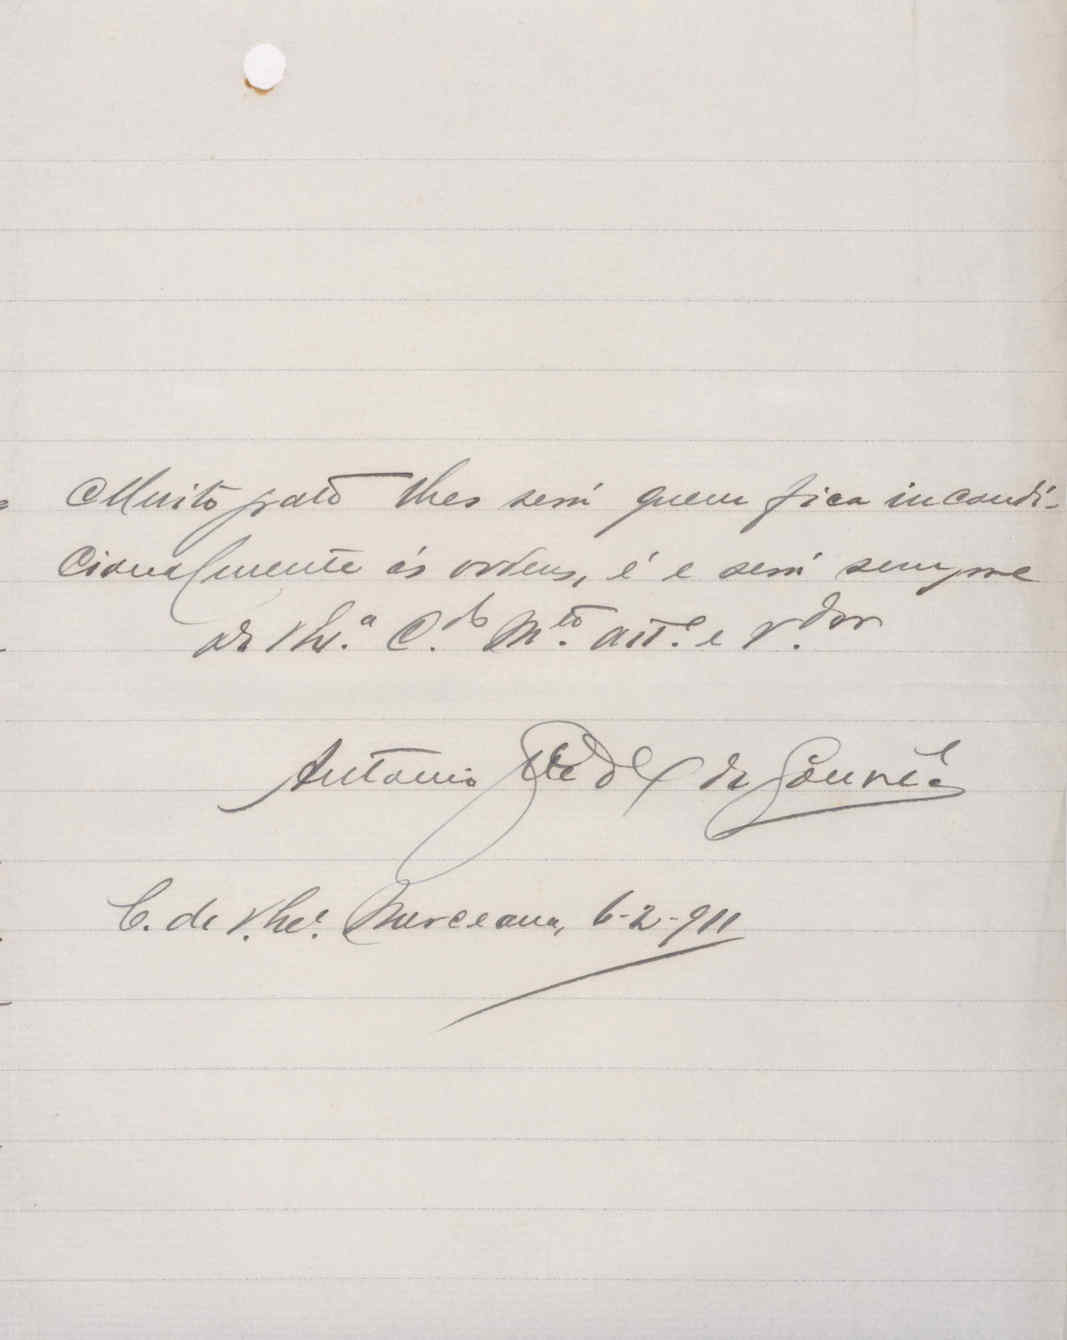 Muito grato lhes será quem fica incondi-
cionalmente ás ordens, é e será sempre
de C.do M.to att.o e V.dor
Antonio de Gouveia
C. de Merceana, 6-2-911